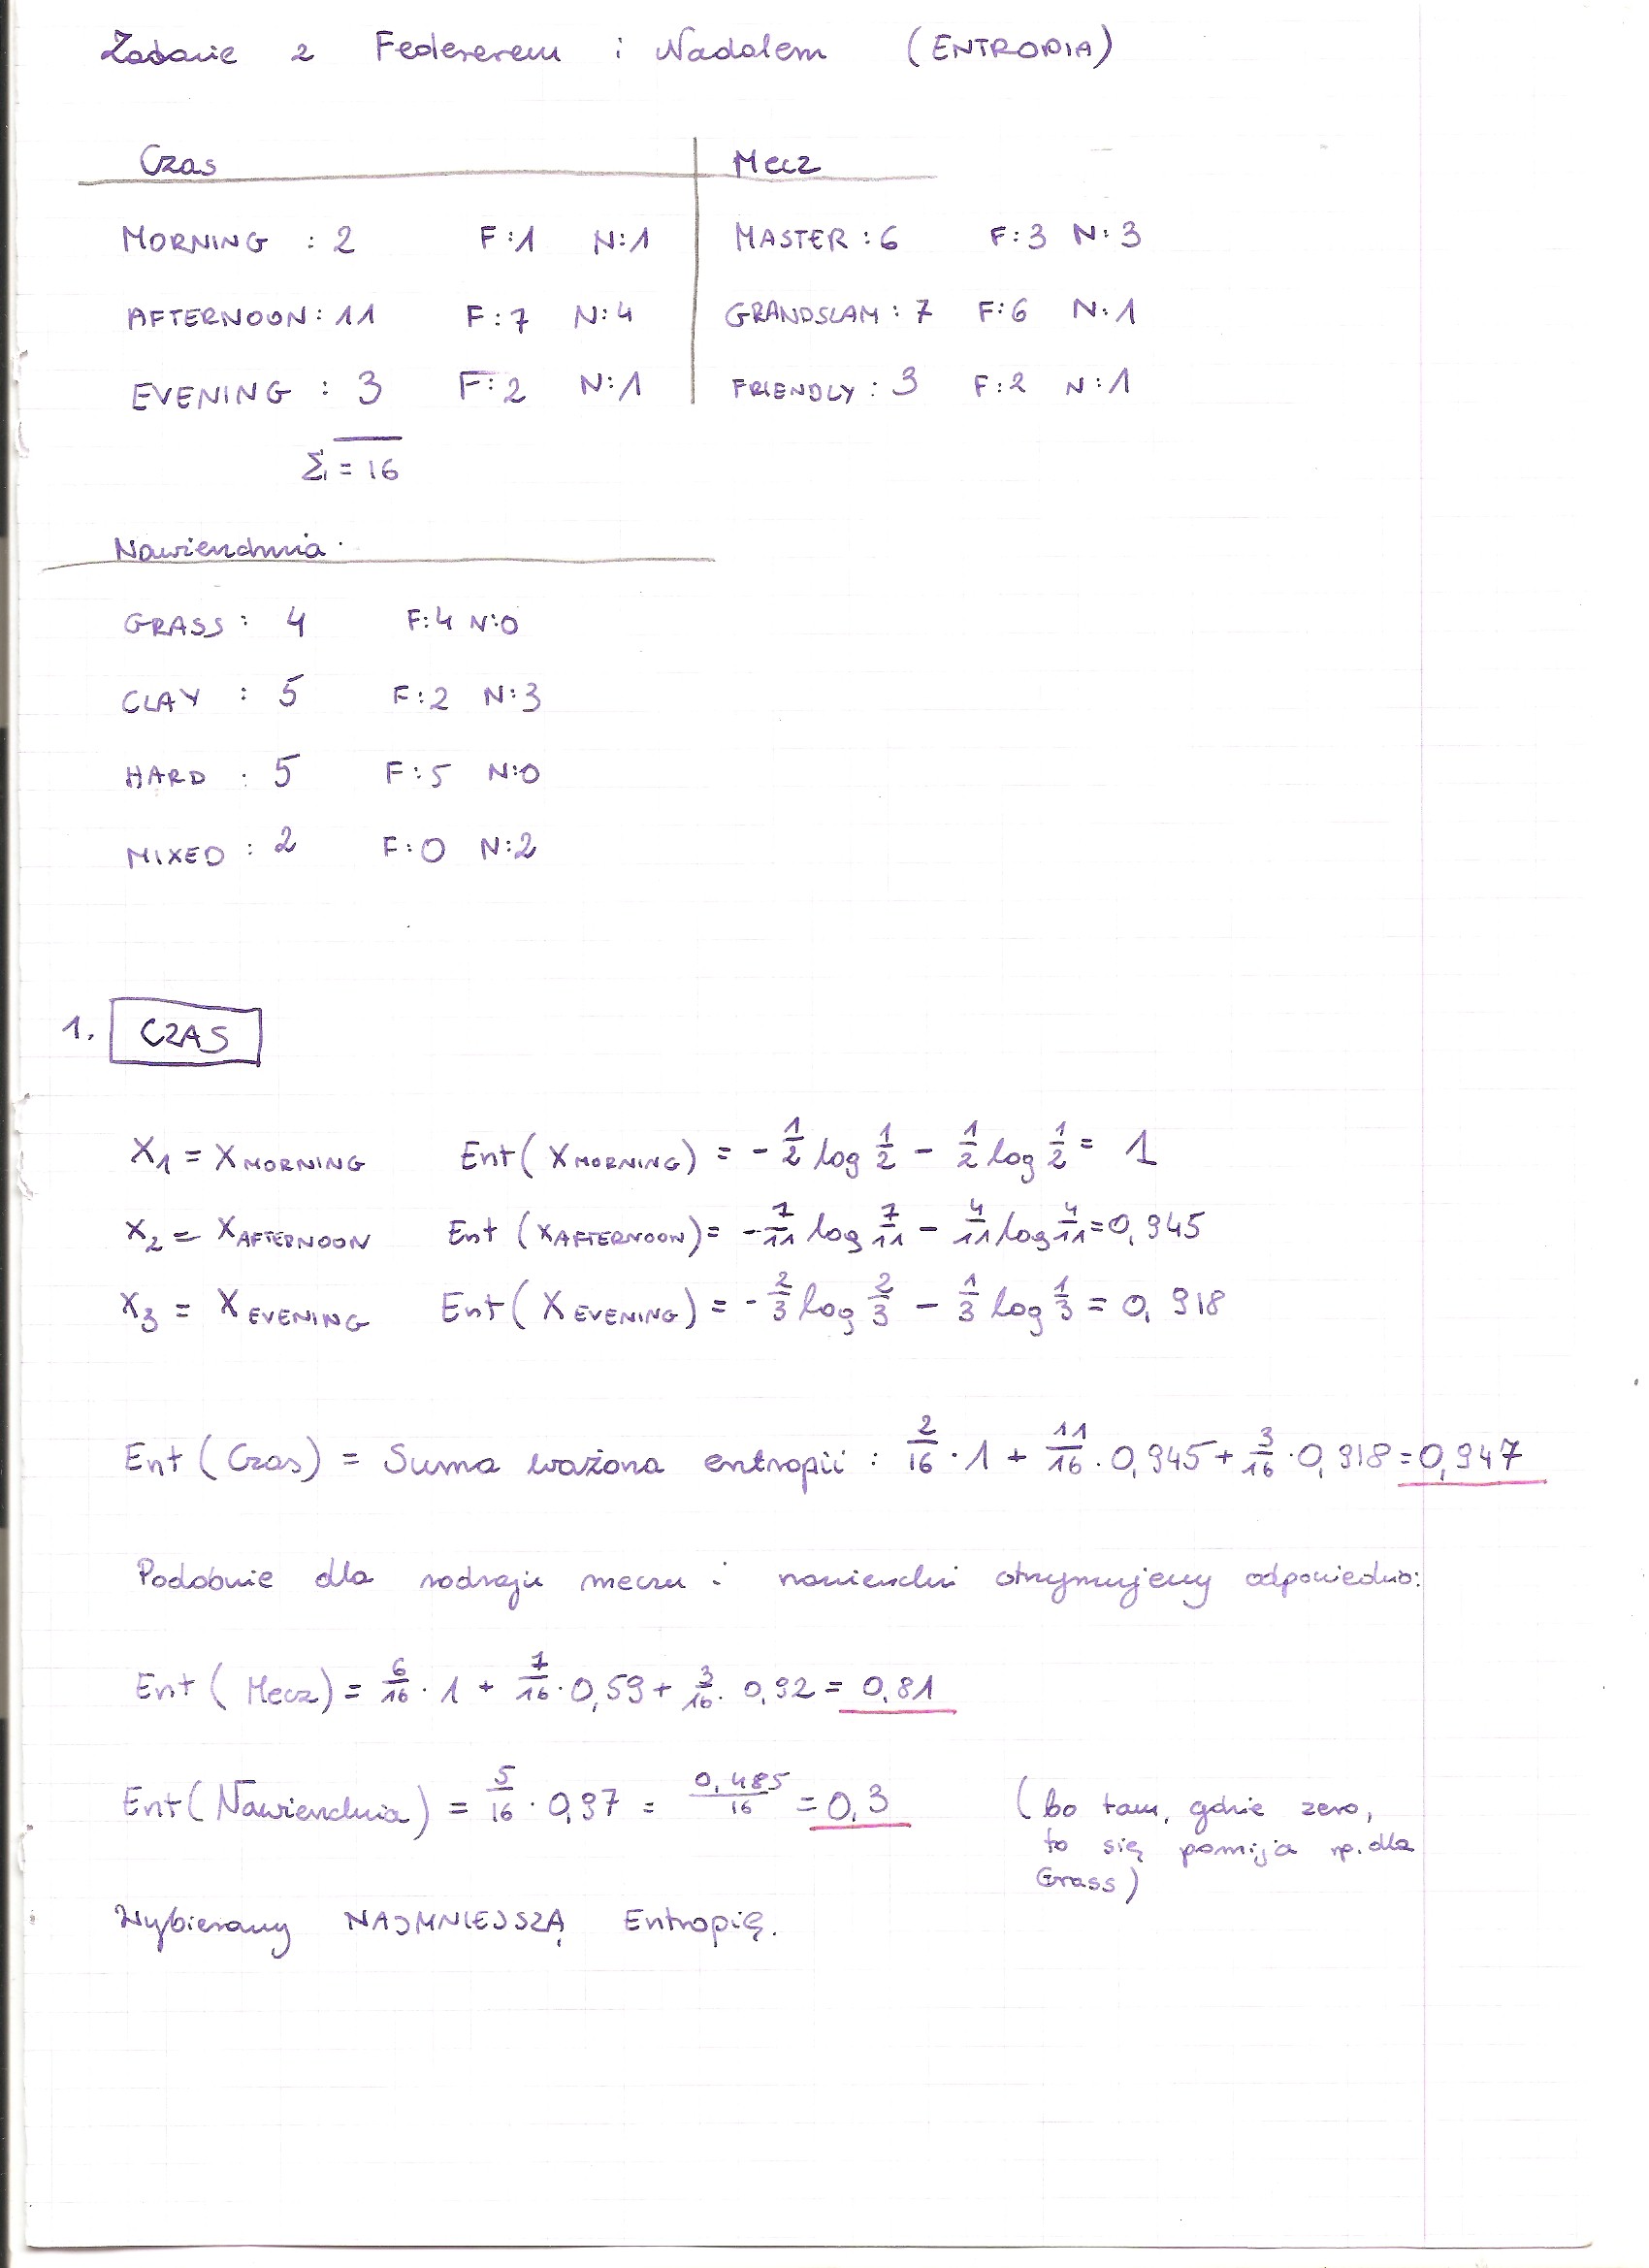 Zadanie z Federerem i Nadalem (ENTROPIA)
Czas Mecz
MORNING : 2 F:1 N:1 MASTER : 6 F:3 N:3
AFTERNOON: 11 F:7 N:4 GRANDSLAM : 7 F:6 N:1
EVENING : 3 F:2 N:1 FRIENDLY : 3 F:2 N:1
Σ = 16
Nawierzchnia
GRASS : 4 F:4 N:0
CLAY : 5 F:2 N:3
HARD : 5 F:5 N:0
MIXED : 2 F:0 N:2
1. CZAS
X₁ = X MORNING Ent( X MORNING) = - 1/2 log 1/2 - 1/2 log 1/2 = 1
X₂ = X AFTERNOON Ent (X AFTERNOON) = - 7/11 log 7/11 - 4/11 log 4/11 = 0,945
X₃ = X EVENING Ent( X EVENING) = - 2/3 log 2/3 - 1/3 log 1/3 = 0,918
Ent (Czas) = Suma ważona entropii : 2/16 · 1 + 11/16 · 0,945 + 3/16 · 0,918 = 0,947
Podobnie dla rodzaju meczu i nawierzchni otrzymujemy odpowiednio:
Ent ( Mecz) = 6/16 · 1 + 7/16 · 0,59 + 3/16 · 0,92 = 0,81
Ent( Nawierzchnia) = 5/16 · 0,97 = 0,485/16 = 0,3 (bo tam, gdzie zero,
to się pomija np. dla
Grass)
Wybieramy NAJMNIEJSZĄ Entropię.